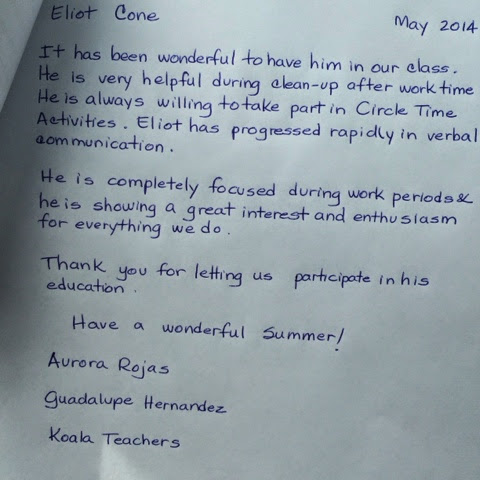 Eliot Cone
May 2014
It has been wonderful to have him in our class.
He is very helpful during clean-up after work time
He is always willing to take part in Circle Time
Activities. Eliot has progressed rapidly in verbal
communication.
He is completely focused during work periods &
he is showing a great interest and enthusiasm
for everything we do.
Thank you for letting us participate in his
education.
Have a wonderful Summer!
Aurora Rojas
Guadalupe Hernandez
Koala Teachers